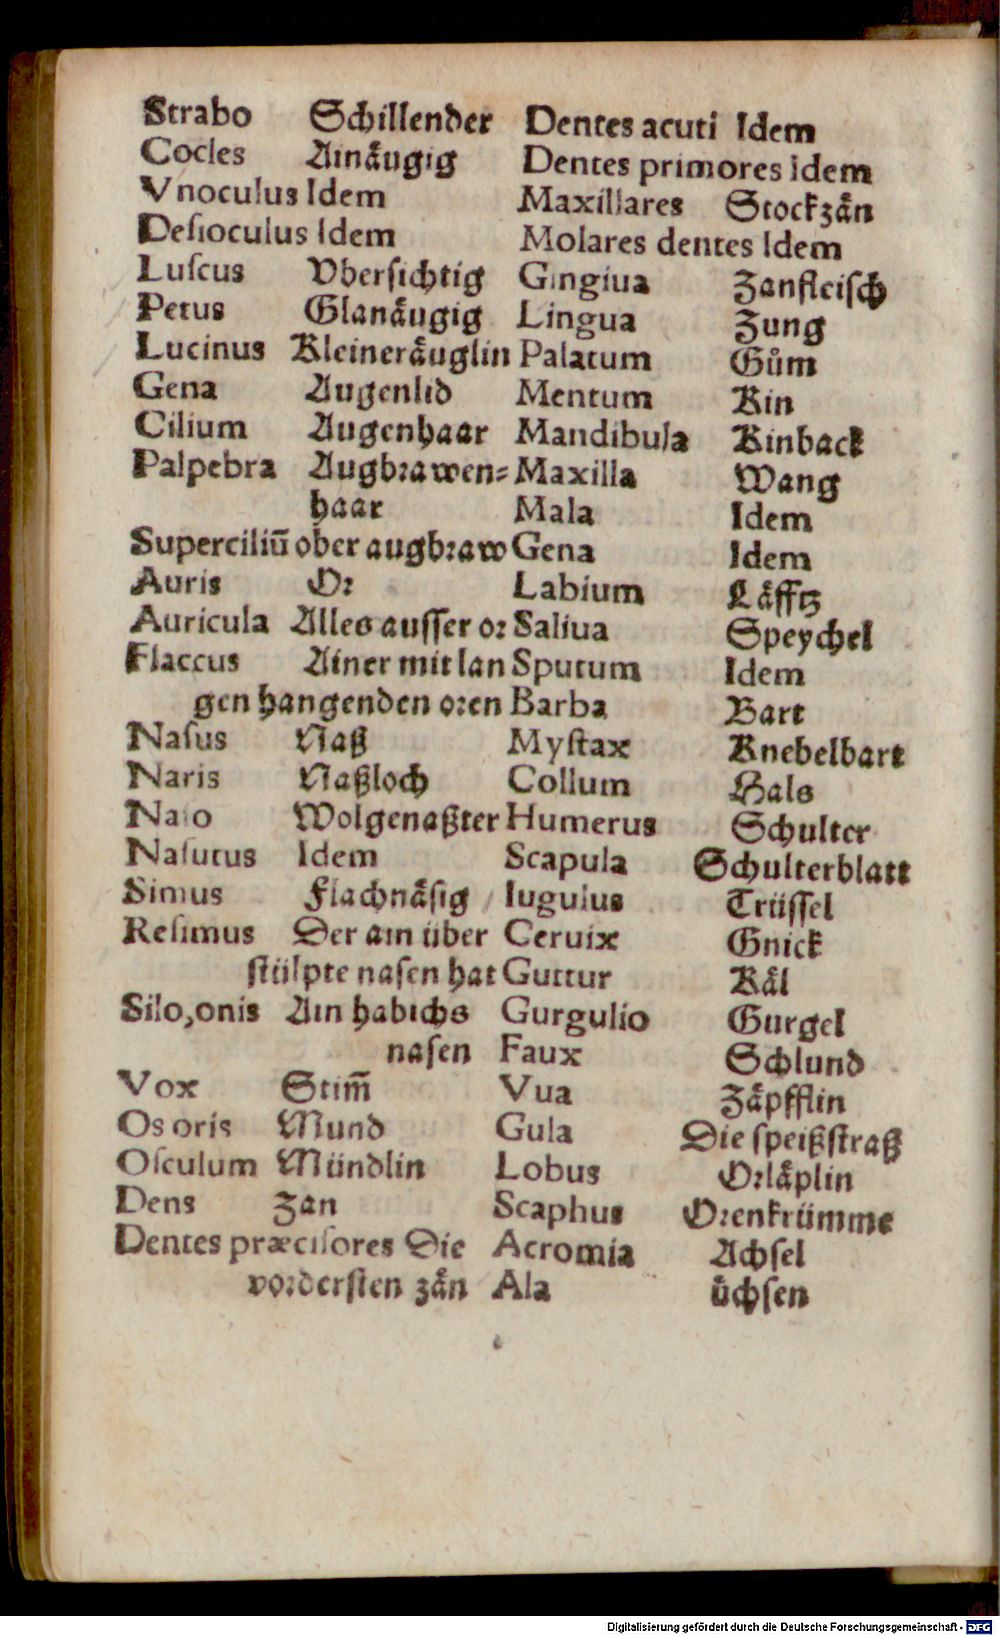 Strabo Schillender
Cocles Ainaͤugig
Vnoculus Idem
Deſioculus Idem
Luſcus Vberſichtig
Petus Glanaͤugig
Lucinus Kleineraͤuglin
Gena Augenlid
Cilium Augenhaar
Palpebra Augbꝛawen⸗
haar
Superciliū ober augbꝛaw
Auris Oꝛ
Auricula Alles auſſer oꝛ
Flaccus Ainer mit lan
gen hangenden oꝛen
Naſus Naß
Naris Naßloch
Naſo Wolgenaßter
Naſutus Idem
Simus Flachnaͤſig
Reſimus Der ain über
ſtülpte naſen hat
Silo,onis Ain habichs
naſen
Vox Stim̄
Os oris Mund
Oſculum Mündlin
Dens Zan
Dentes præciſores Die
voꝛderſten zaͤn
Dentes acuti Idem
Dentes primores Idem
Maxillares Stockzaͤn
Molares dentes Idem
Gingiua Zanfleiſch
Lingua Zung
Palatum Guͦm
Mentum Kin
Mandibula Kinback
Maxilla Wang
Mala Idem
Gena Idem
Labium Laͤfftz
Saliua Speychel
Sputum Idem
Barba Bart
Myſtax Knebelbart
Collum Hals
Humerus Schulter
Scapula Schulterblatt
Iugulus Trüſſel
Ceruix Gnick
Guttur Kaͤl
Gurgulio Gurgel
Faux Schlund
Vua Zaͤpfflin
Gula Die ſpeißſtraß
Lobus Oꝛlaͤplin
Scaphus Oꝛenkrümme
Acromia Achſel
Ala uͤchſen
Digitalisierung gefördert durch die Deutsche Forschungsgemeinschaft - DFG